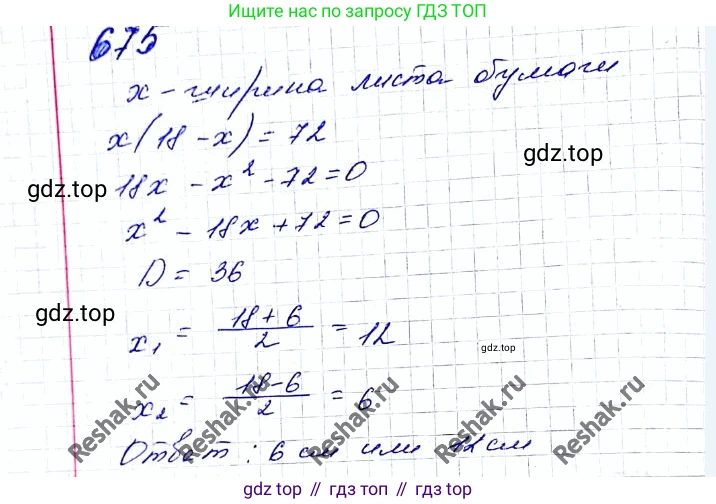 Ищите нас по запросу ГДЗ ТОП
675
x - ширина листа бумаги
x(18 - x) = 72
gdz.top
18x - x² - 72 = 0
gdz.top
x² - 18x + 72 = 0
D = 36
gdz.top
x₁ = (18 + 6)/2 = 12
gdz.top
x₂ = (18 - 6)/2 = 6
Reshak.ru
Reshak.ru
Reshak.ru
Ответ: 6 см или 12 см
gdz top // гдз топ // гдз.top